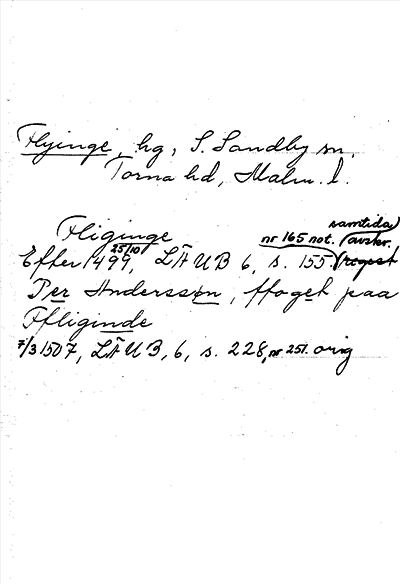 Flyinge, hg, S. Sandby sn,
Torna hd, Malm. l.
Fliginge
samtida
nr 165 not. avskr.
Efter 25/10 1499, LÄUB 6, s. 155. (regest
Per Anderssøn, ffoget paa
Ffliginde
7/3 1507, LÄUB, 6, s. 228, nr 251. orig